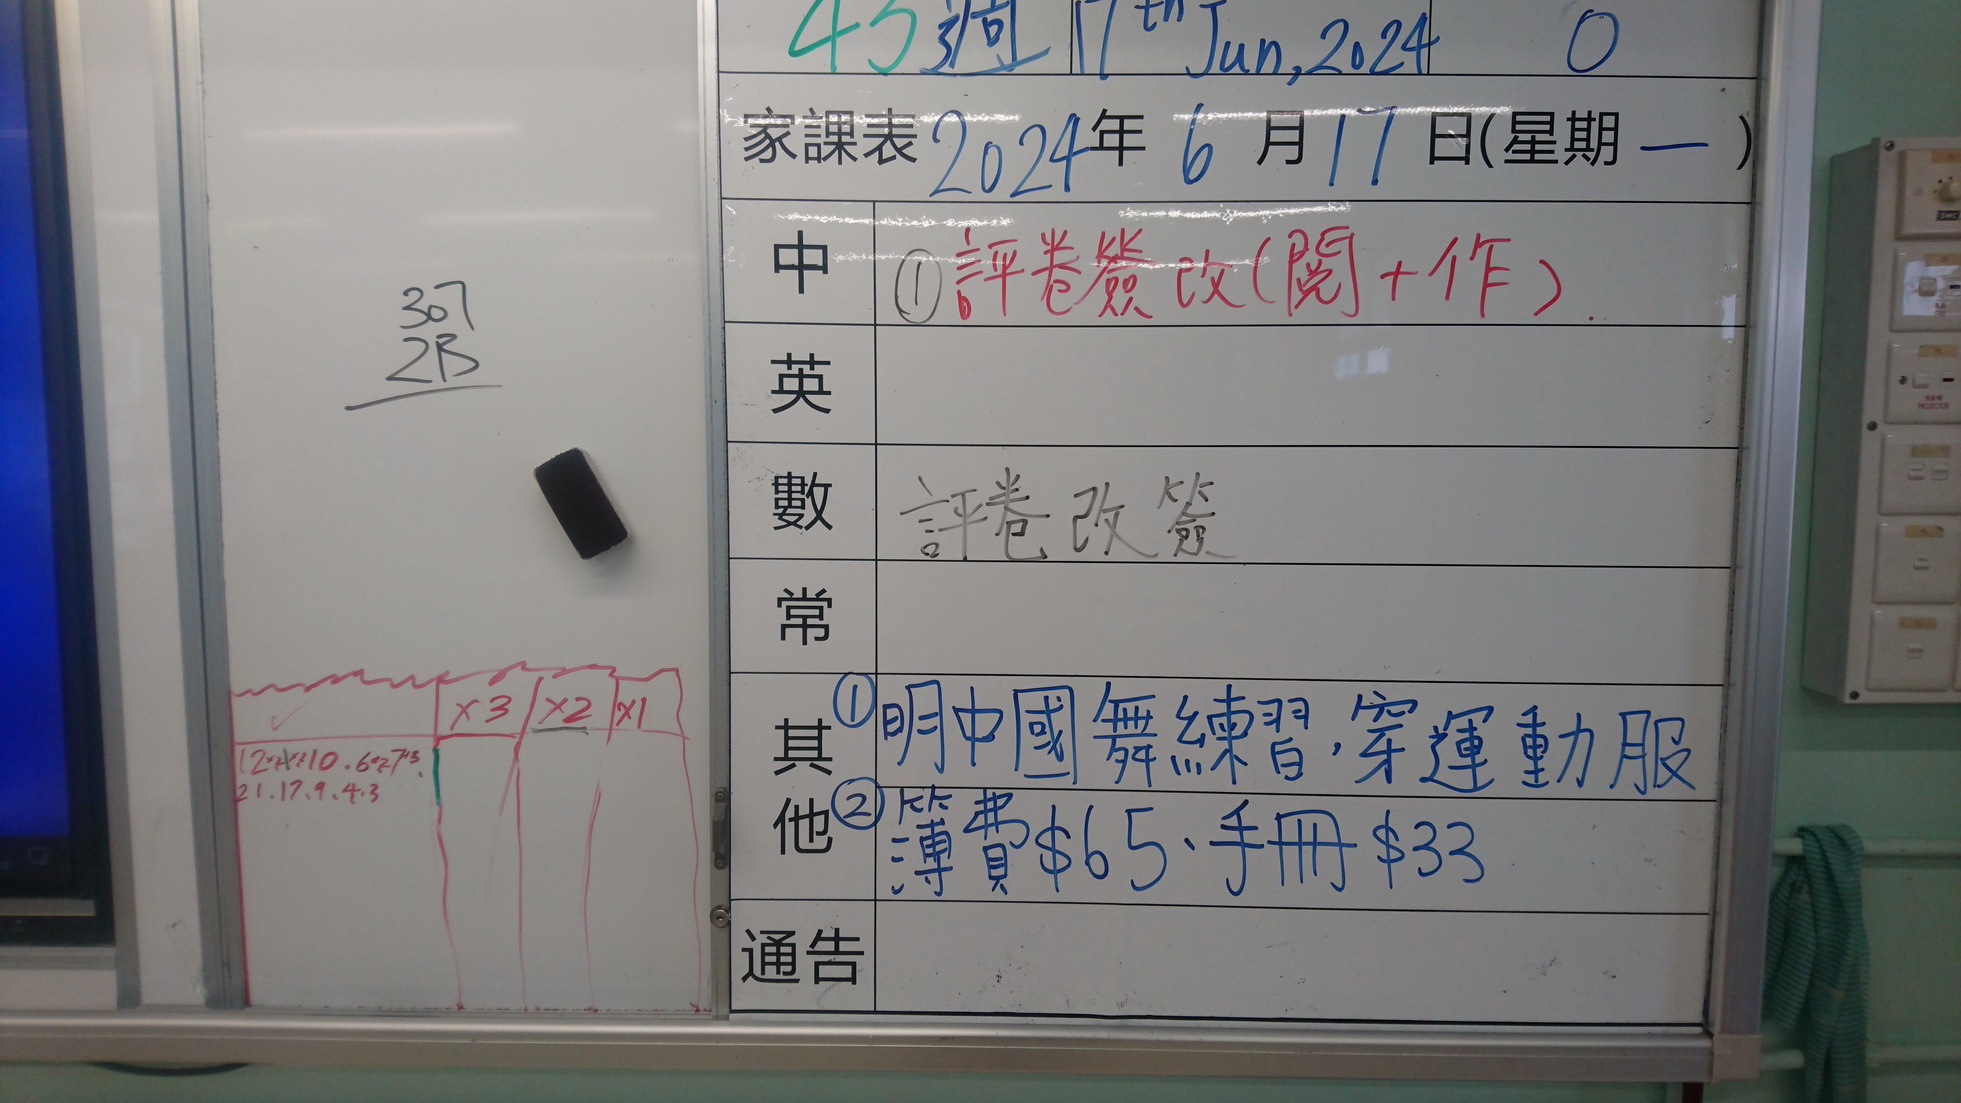 45週 17th Jun, 2024 0
家課表 2024年 6 月 17 日(星期 一 )
中 ①評卷簽改(閱+作).
英
數 評卷改簽
常
其他 ①明中國舞練習,穿運動服
②簿費$65、手冊$33
通告
307
2B
✓ x3 x2 x1
21.17.9.4.3